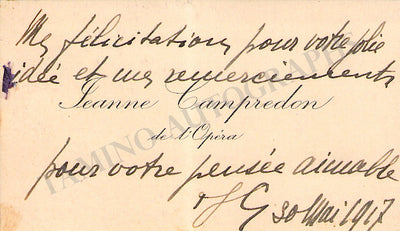 Mes félicitations pour votre jolie
idée et mes remerciements
Jeanne Campredon
de l'Opéra
pour votre pensée aimable
30 Mai 1917
TAMINO AUTOGRAPHS